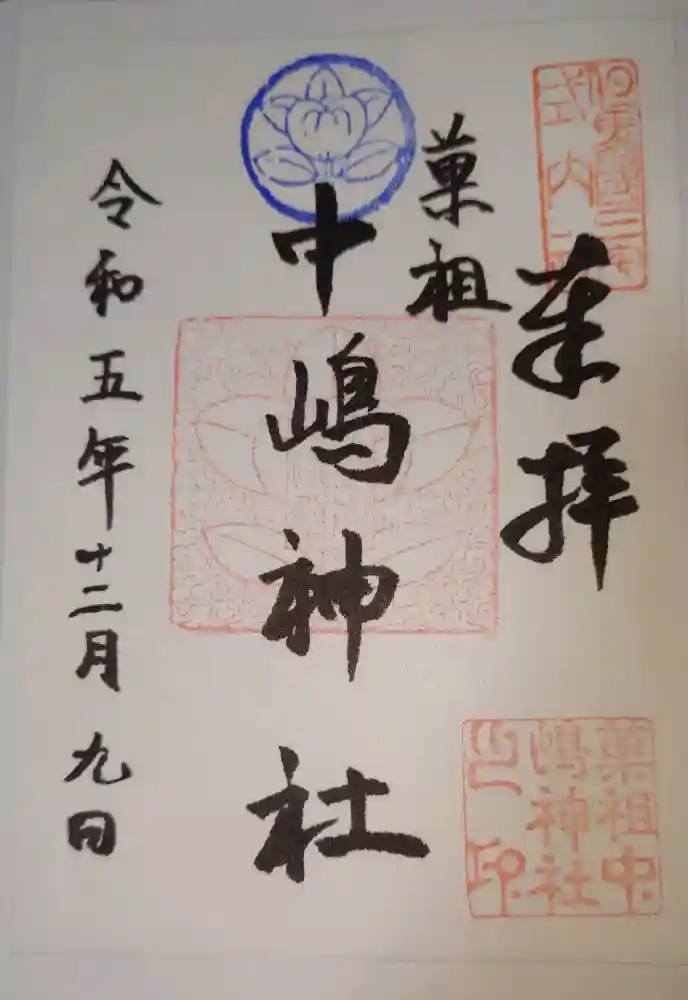 但馬國三宅
式内
奉拝
菓祖
中嶋神社
菓祖中
嶋神社
之印
令和五年十二月九日